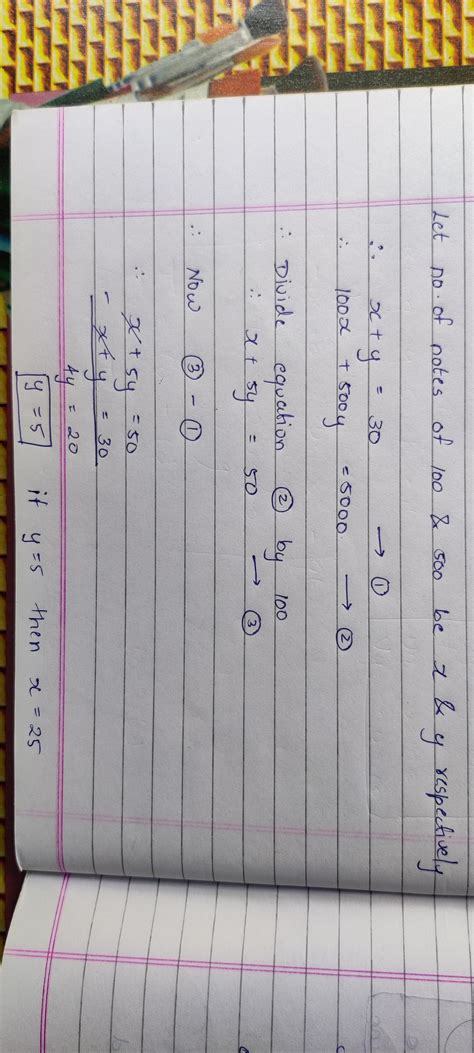 Let no. of notes of 100 & 500 be x & y respectively
∴ x + y = 30 → ①
∴ 100x + 500y = 5000 → ②
∴ Divide equation ② by 100
∴ x + 5y = 50 → ③
∴ Now ③ - ①
∴ x + 5y = 50
- x + y = 30
4y = 20
y = 5 if y=5 then x = 25